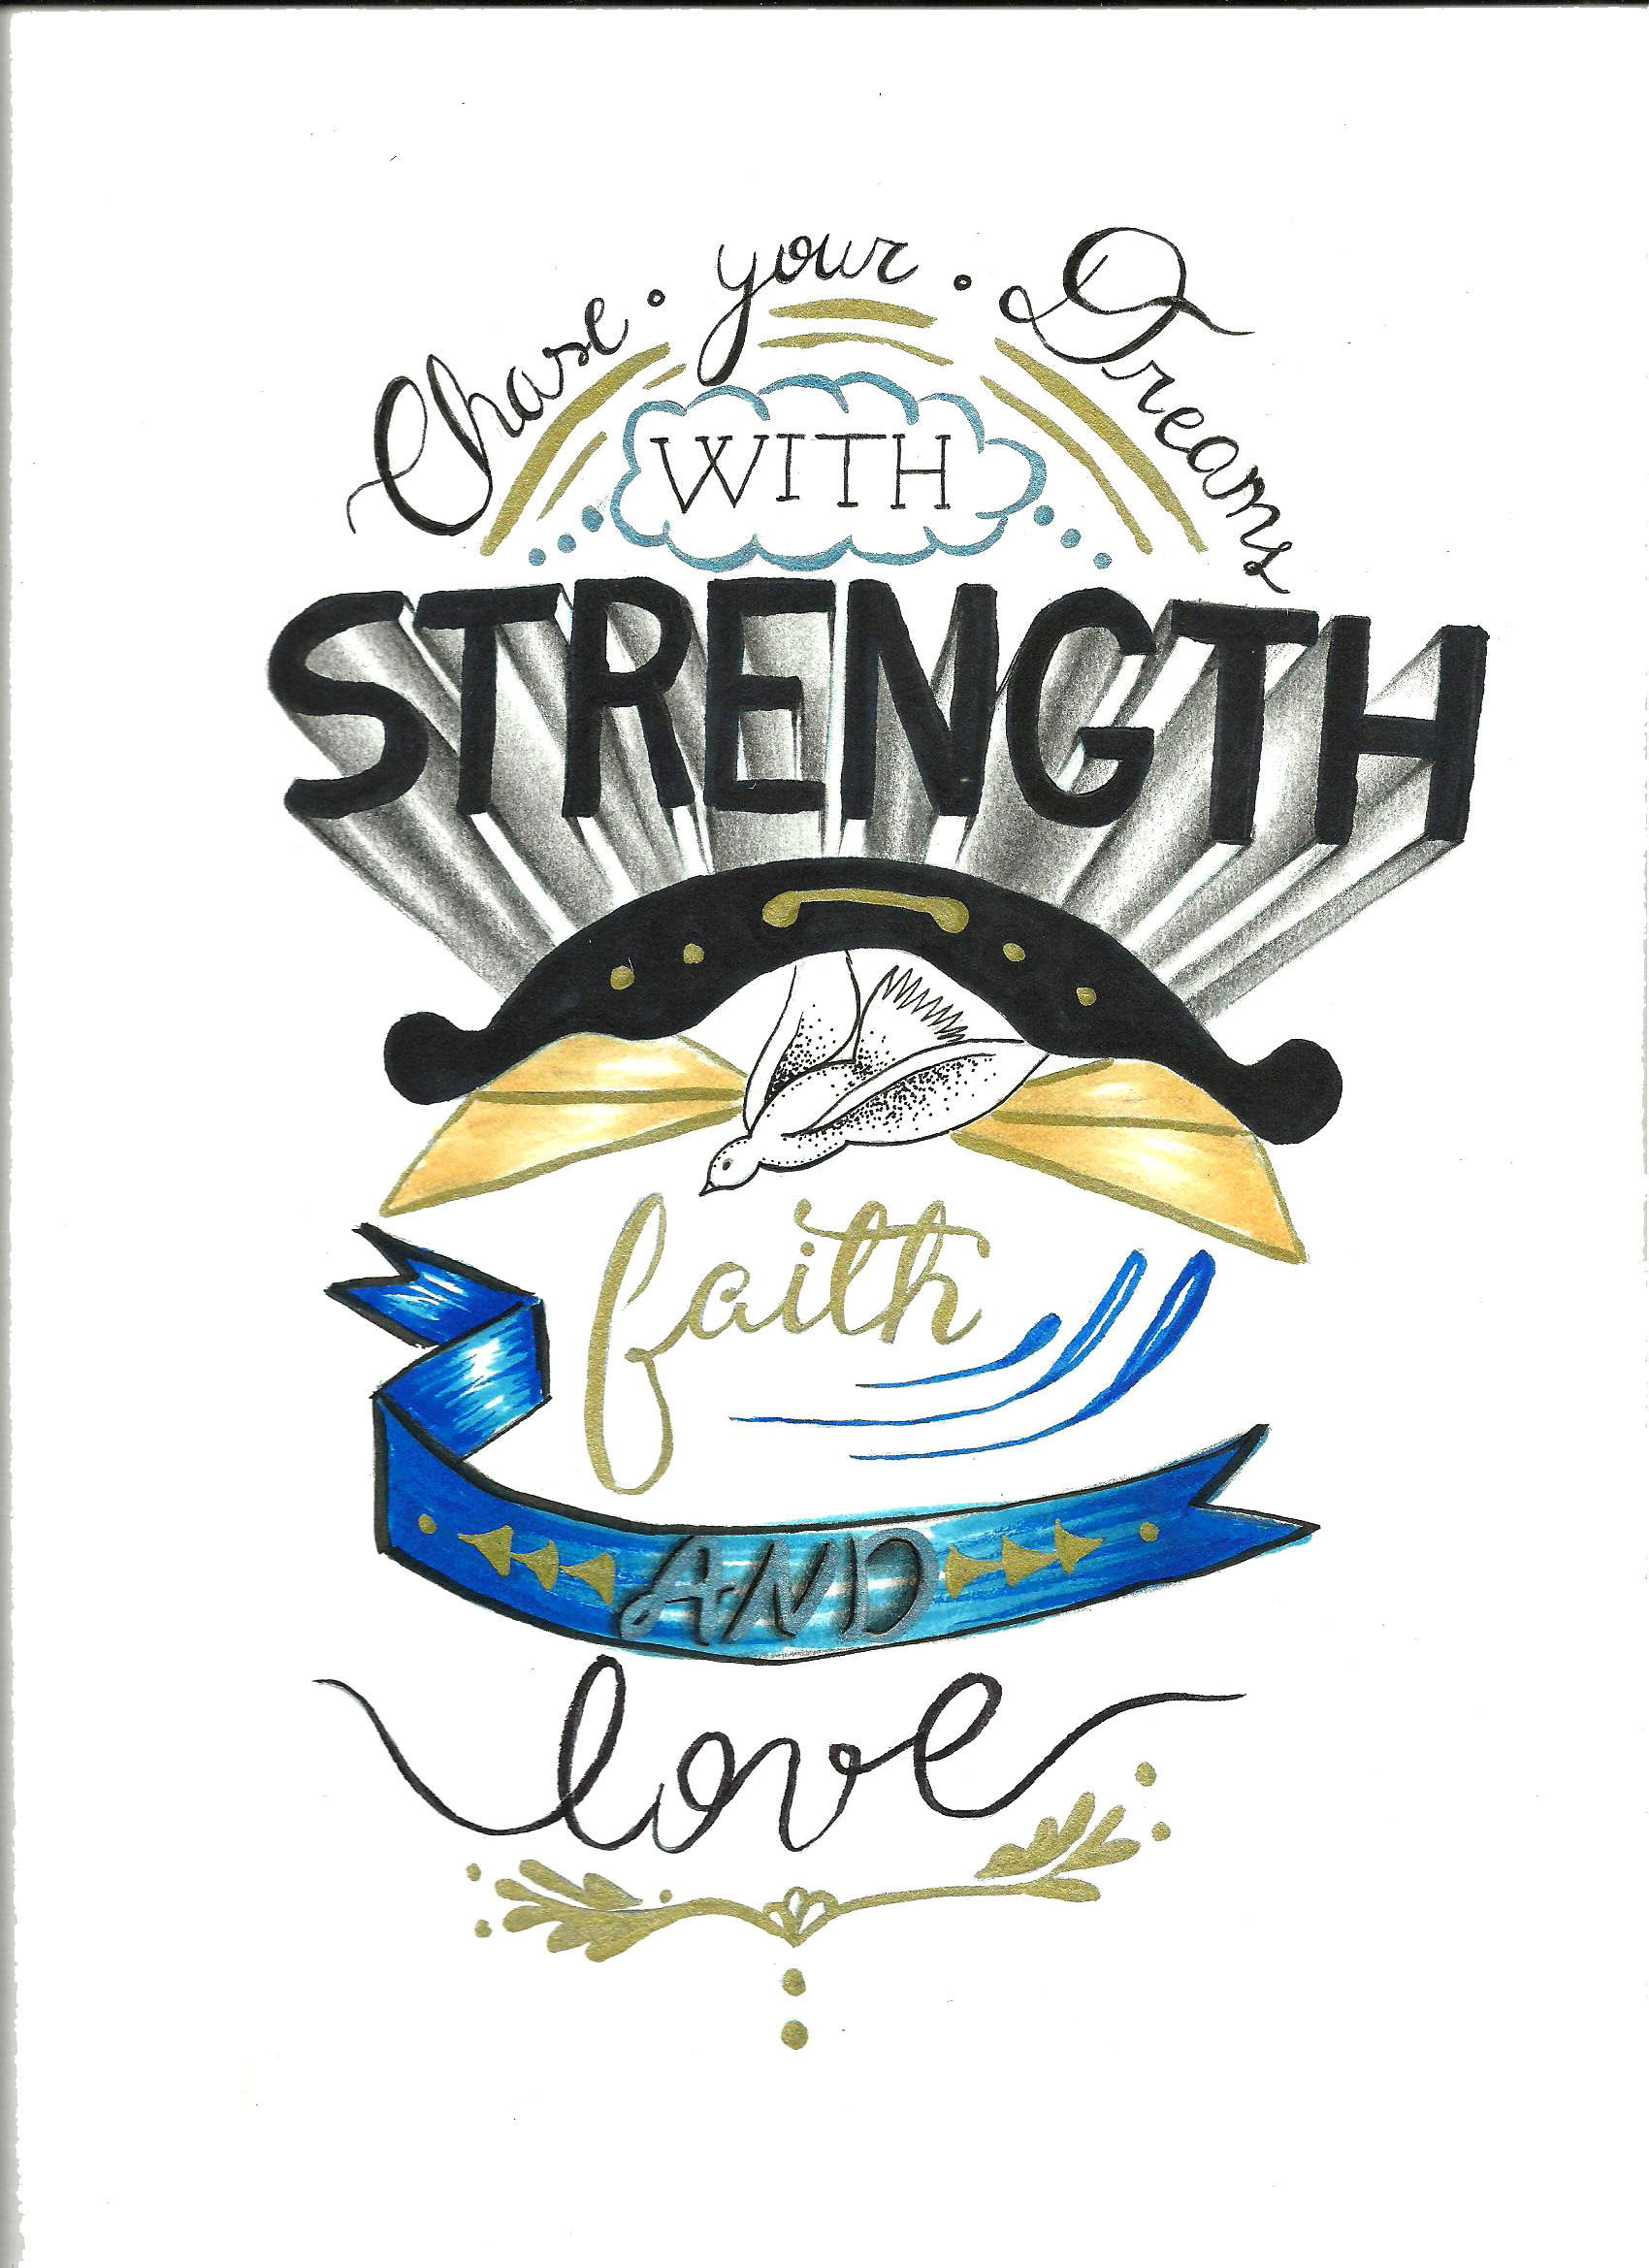 Chase . your . Dreams
WITH
STRENGTH
faith
AND
love